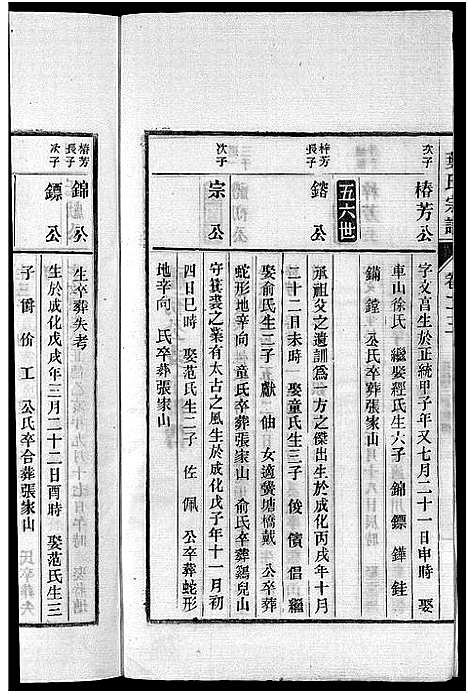 葉氏宗譜
卷十三
次子 椿芳公
字文富生於正統甲子年又七月二十一日申時 娶
車山徐氏 繼娶經氏生六子 錦 鏢 鏵 銈
鏑 鏜 公氏卒葬張家山
五六世
梓芳長子 鎔公
承祖父之遺訓爲一方之傑出生於成化丙戌年十月
二十二日未時 娶童氏生三子 俊 儐 倡 繼
娶俞氏生二子 獻 仙 女適黌塘橋戴 公卒葬
蛇形地辛向 童氏卒葬張家山 俞氏卒葬鷄兒山
次子 宗公
守箕裘之業有太古之風生於成化戊子年十一月初
四日巳時 娶范氏生二子 佐 佩 公卒葬蛇形
地辛向 氏卒葬張家山
椿芳長子 錦公
生卒葬失考
次子 鏢公
生於成化戊戌年三月二十二日酉時 娶范氏生三
子 爵 价 工 公氏卒合葬張家山